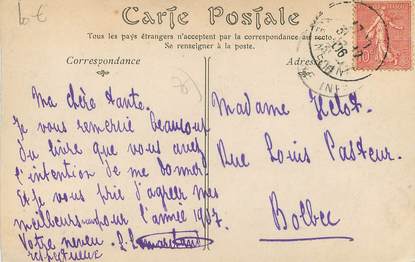 6€
Carte Postale
Tous les pays étrangers n'acceptent pas la correspondance au recto.
Se renseigner à la poste.
Correspondance
Adresse
Ma chère tante.
Je vous remercie beaucoup
du livre que vous avez
l'intention de me donner
Et je vous prie d'agréer mes
meilleurs pour l'année 1907.
Votre neveu
respectueux
Madame Helot.
Rue Louis Pasteur.
Bolbec